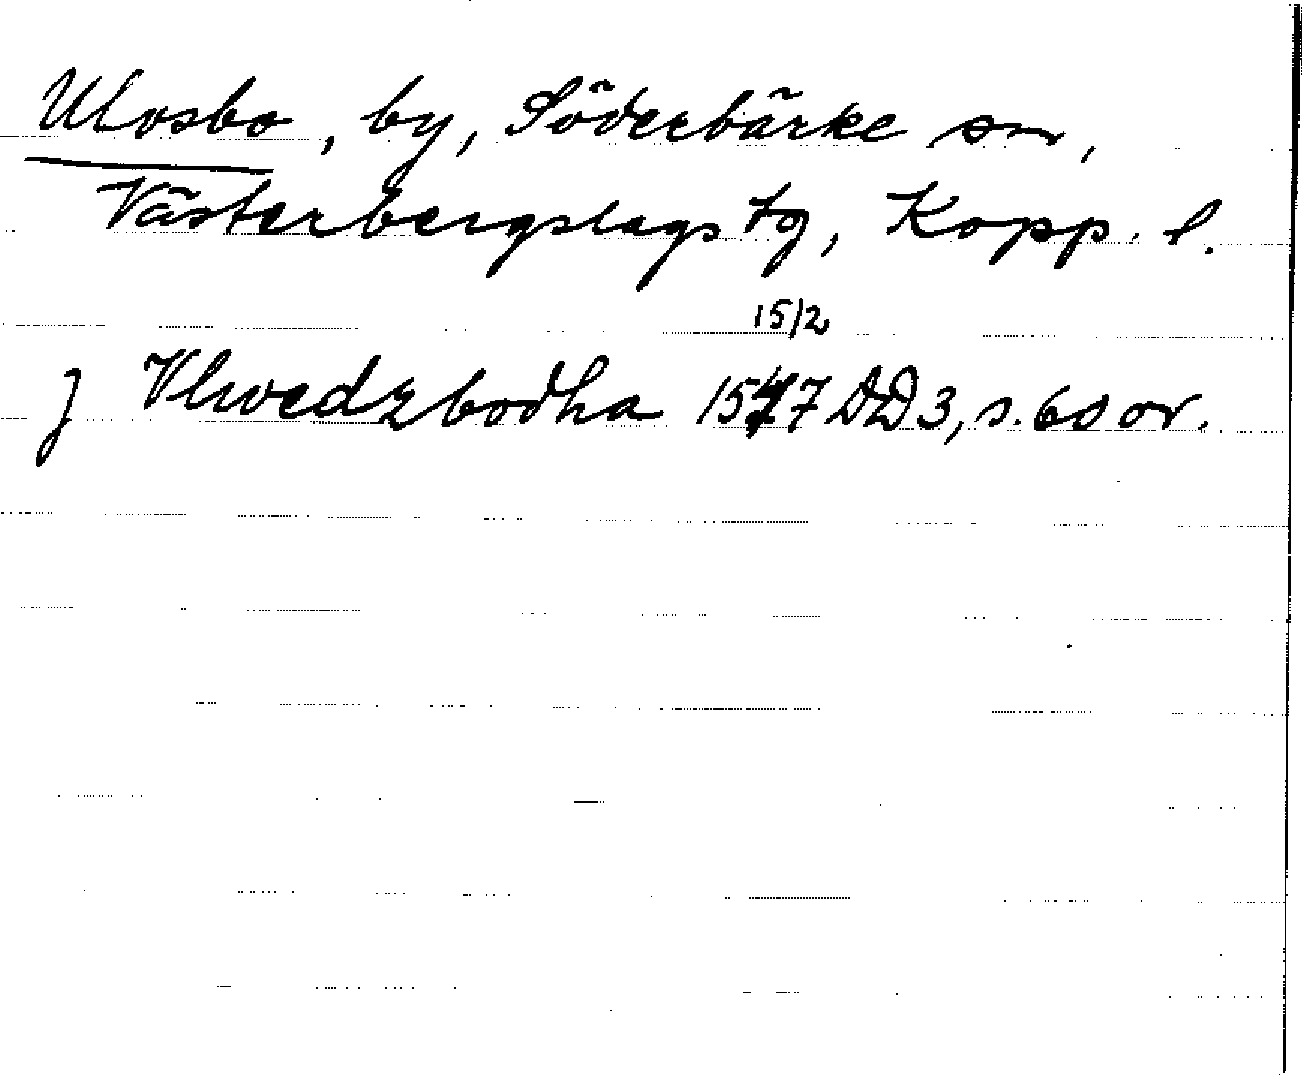 Ulvsbo, by, Söderbärke sn,
Västerbergslags tg, Kopp. l.
15/2
J Vlwedzbodha 1547 DD 3, s. 60 or.